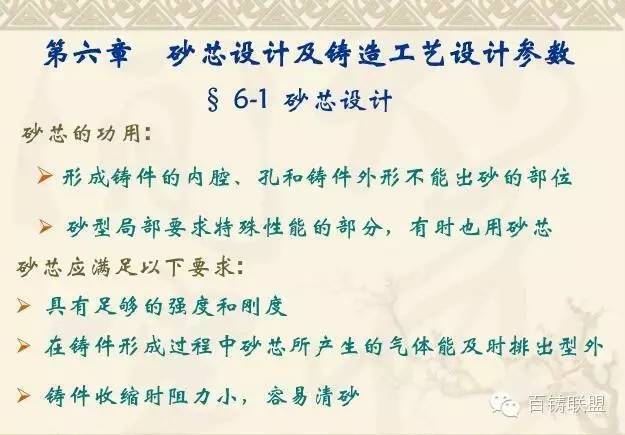 第六章 砂芯设计及铸造工艺设计参数
§ 6-1 砂芯设计
砂芯的功用:
形成铸件的内腔、孔和铸件外形不能出砂的部位
砂型局部要求特殊性能的部分，有时也用砂芯
砂芯应满足以下要求:
具有足够的强度和刚度
在铸件形成过程中砂芯所产生的气体能及时排出型外
铸件收缩时阻力小，容易清砂
百铸联盟